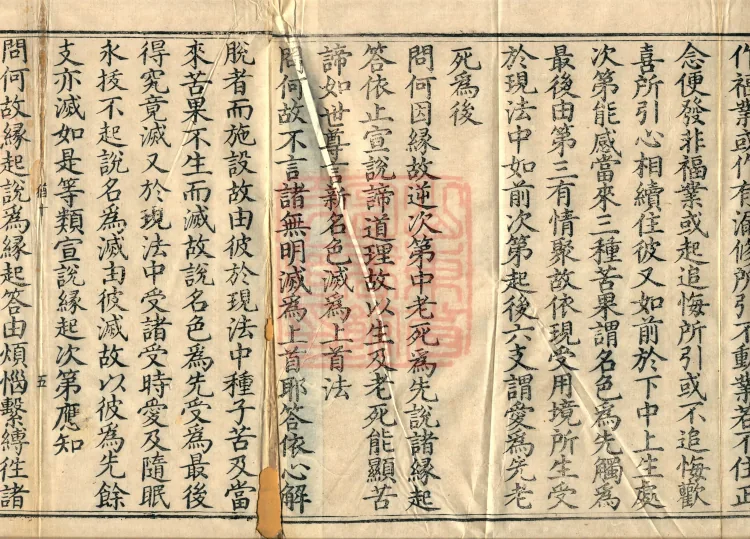 作福業或作有漏修所引不動業若不住正
念便發非福業或起追悔所引或不追悔歡
喜所引心相續住彼又如前於下中上生處
次第能感當來三種苦果謂名色為先觸為
最後由第三有情聚故依現受用境所生受
於現法中如前次第起後六支謂愛為先老
死為後
問何因緣故逆次第中老死為先說諸緣起
答依止宣說諦道理故以生及老死能顯苦
諦如世尊言新名色滅為上首法
問何故不言諸無明滅為上首耶答依心解
脫者而施設故由彼於現法中種子苦及當
來苦果不生而滅故說名色為先受為最後
得究竟滅又於現法中受諸受時愛及隨眠
永拔不起說名為滅由彼滅故以彼為先餘
支亦滅如是等類宣說緣起次第應知
十
五
問何故緣起說為緣起答由煩惱繫縛往諸